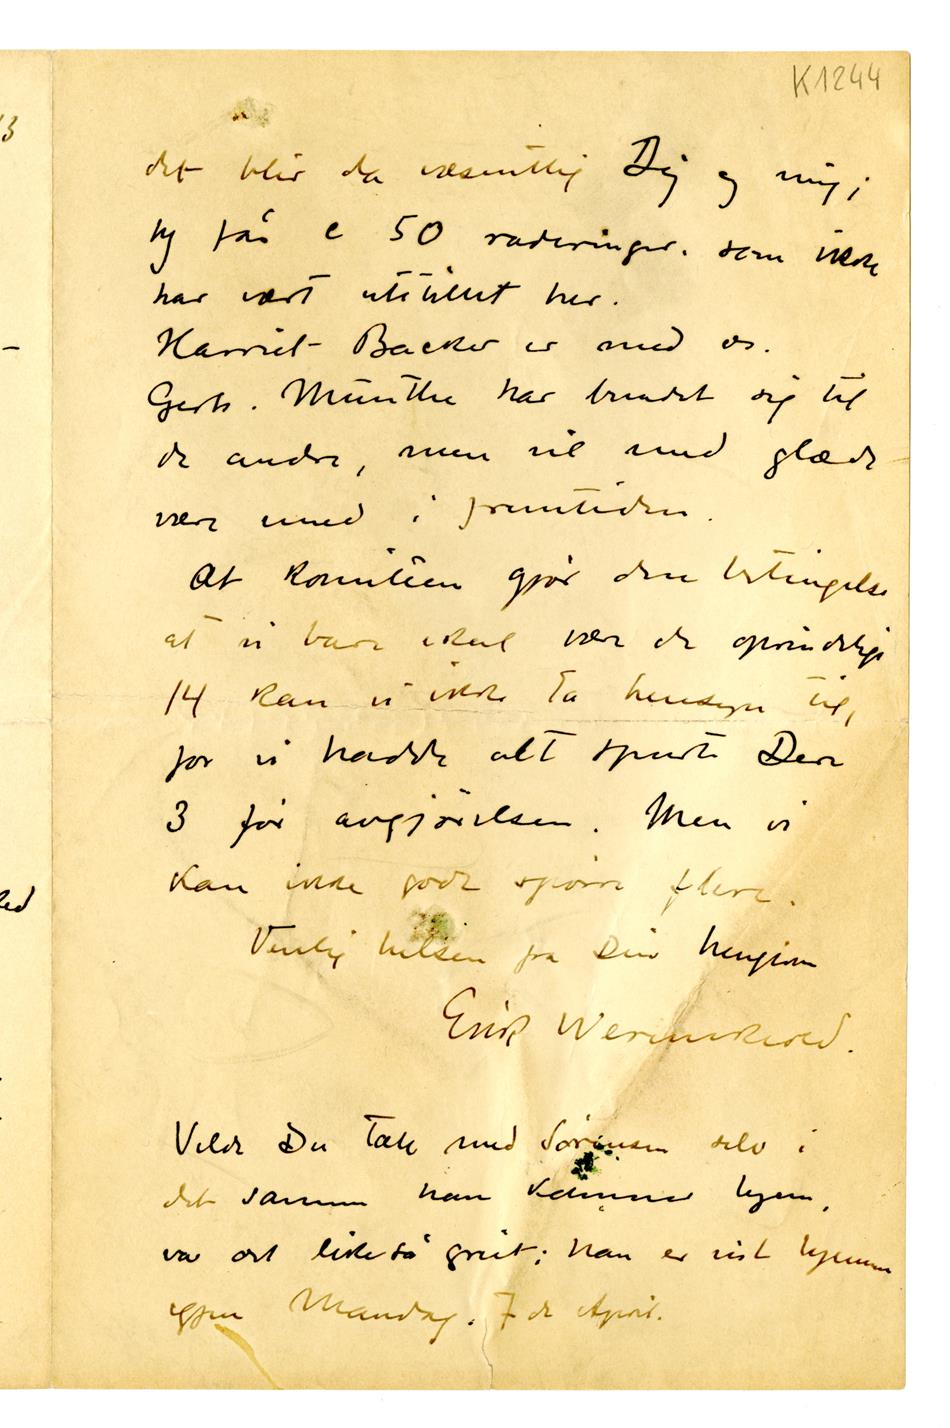 K1244
det blir da væsentlig Dig og mig;
jeg får c 50 raderinger. som ikke
har vært utstillet her.
Harriet Backer er med os.
Gerh. Munthe har bundet sig til
de andre, men vil med glæde
være med i fremtiden.
At komitéen gjør den betingelse
at vi bare skal være de oprindelige
14 kan vi ikke ta hensyn til,
for vi hadde alt spurt Dere
3 før avgjørelsen. Men vi
kan ikke godt spørre flere.
Venlig hilsen fra Din hengivne
Erik Werenskiold.
Vilde Du tale med Sørensen selv i
det samme han kommer hjem,
var det likeså greit; han er vist hjemme
igjen Mandag. 7de April.